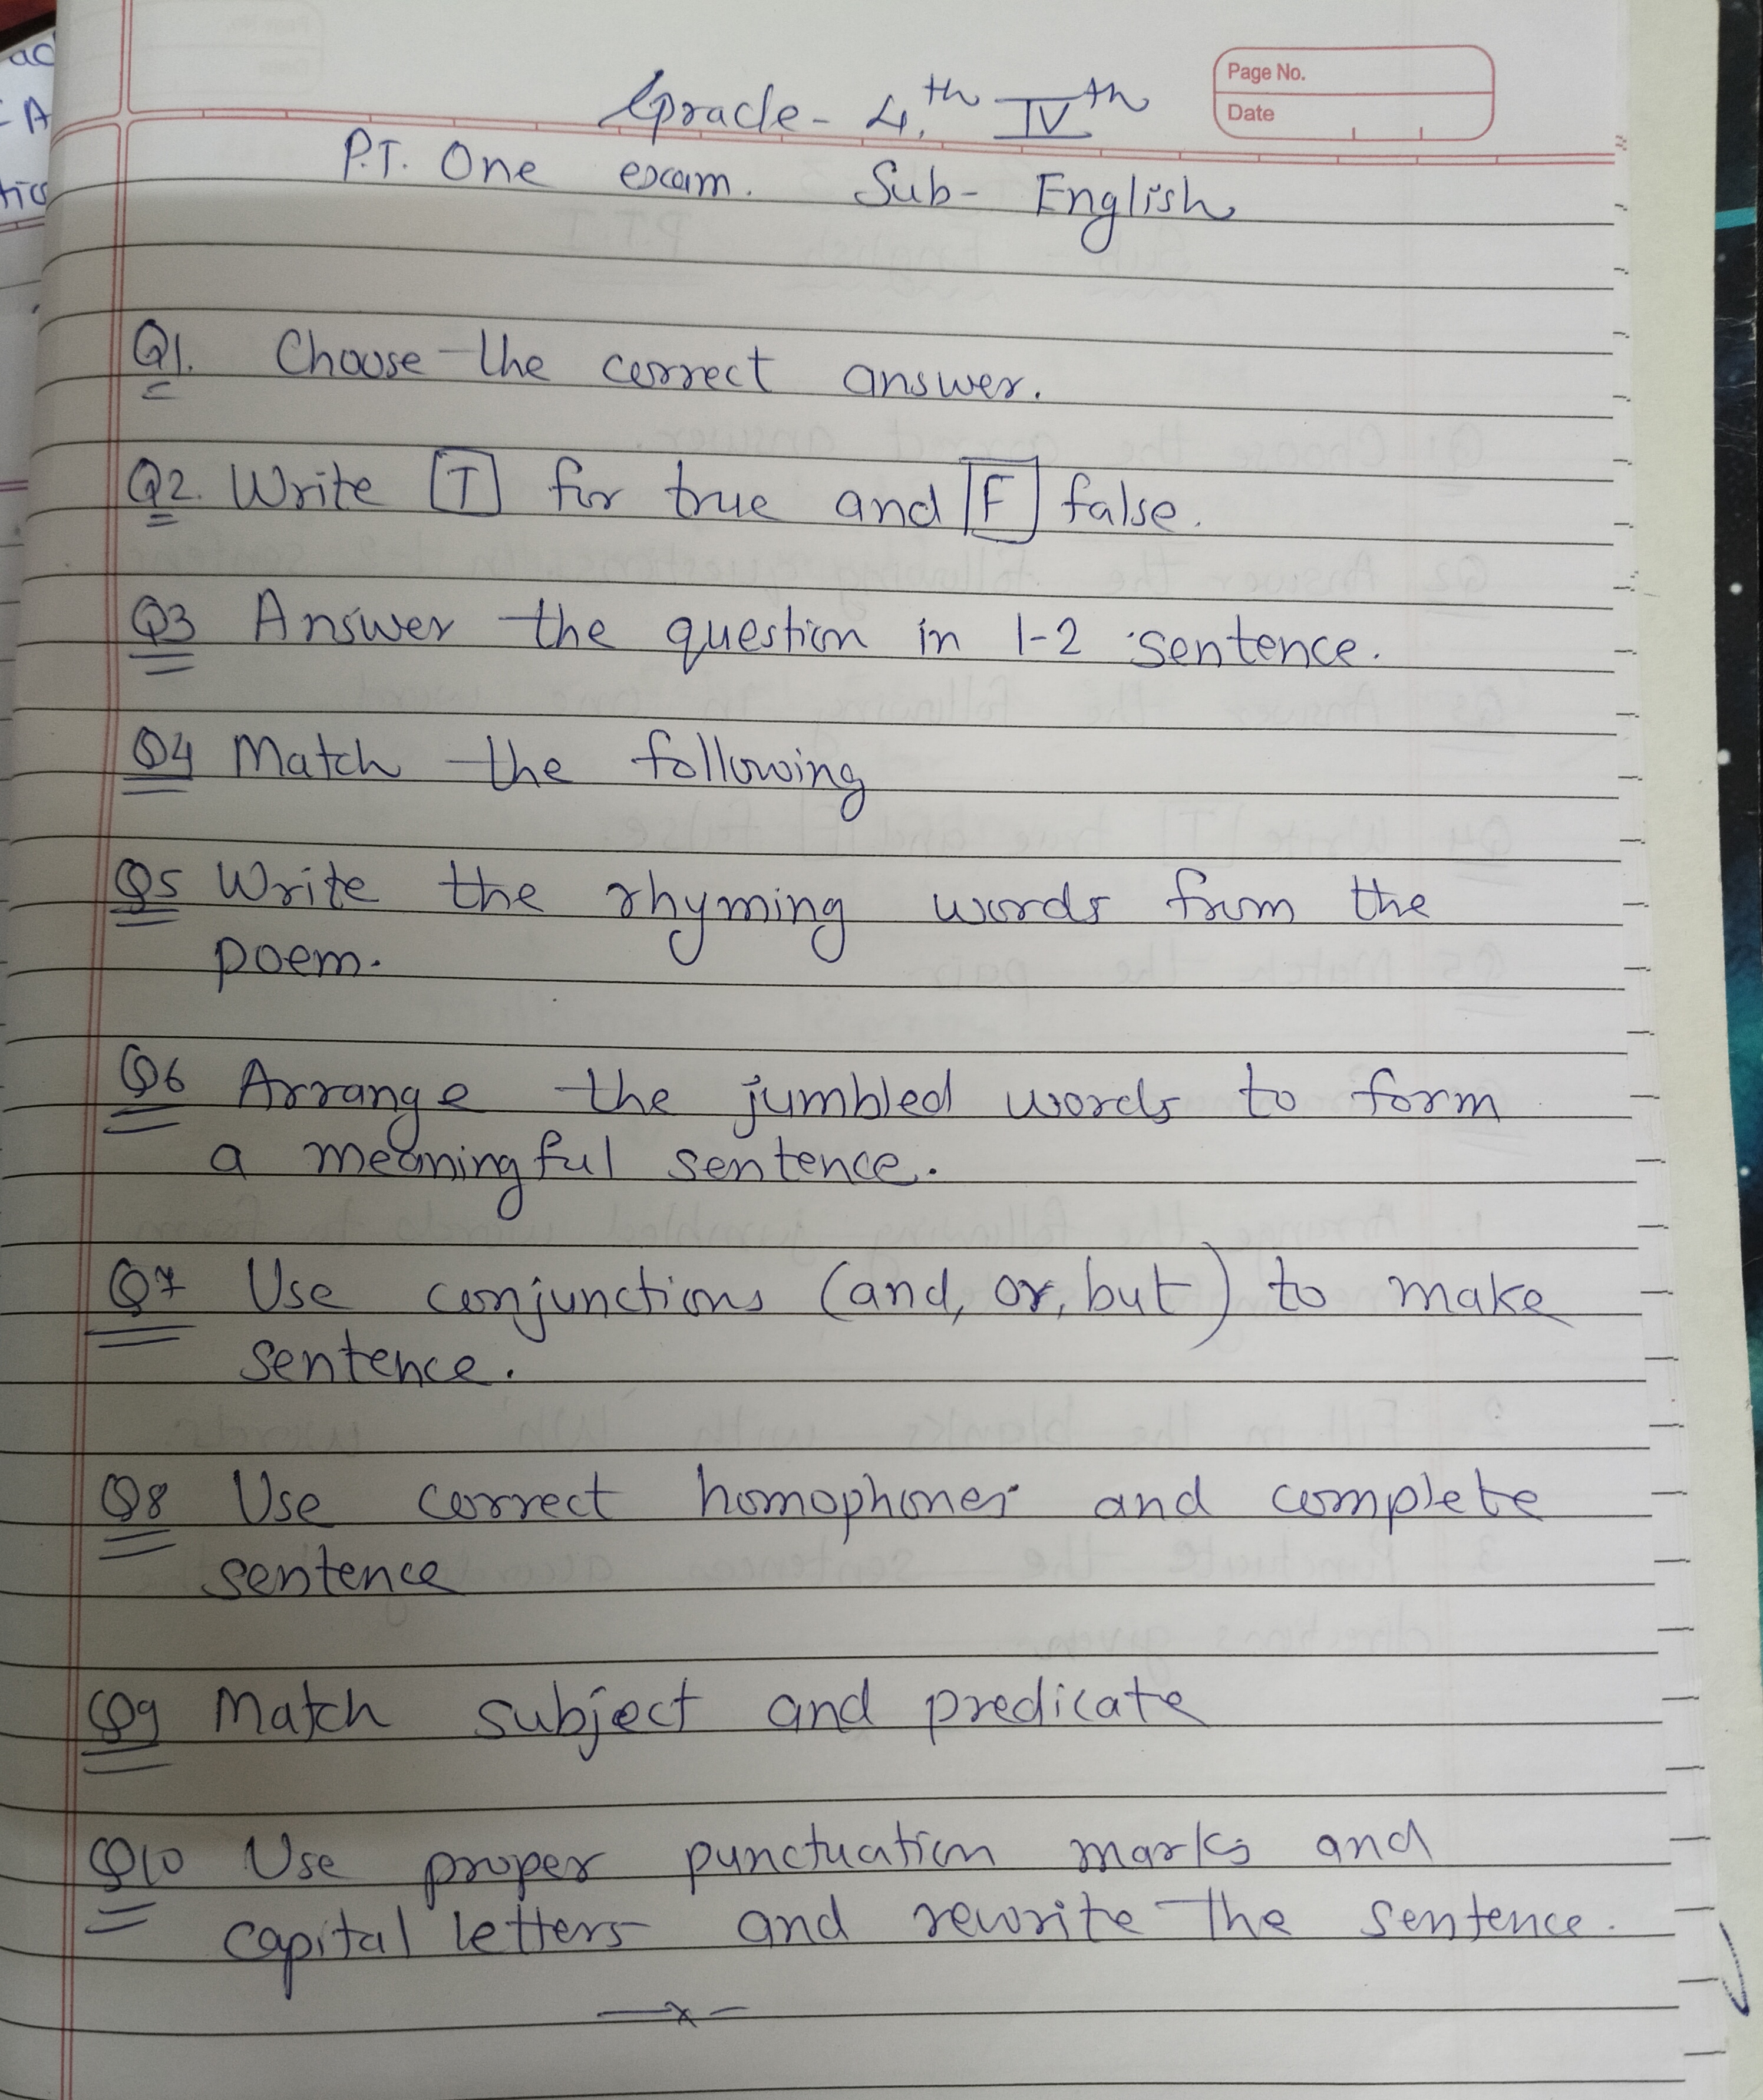 Grade- 4th IVth
Page No.
Date
P.T. One exam. Sub- English
Q1. Choose the correct answer.
Q2. Write T for true and F false.
Q3 Answer the question in 1-2 sentence.
Q4 Match the following
Q5 Write the rhyming words from the
poem.
Q6 Arrange the jumbled words to form
a meaningful sentence.
Q7 Use conjunctions (and, or, but) to make
sentence.
Q8 Use correct homophones and complete
sentence
Q9 Match subject and predicate
Q10 Use proper punctuation marks and
capital letters and rewrite the sentence.